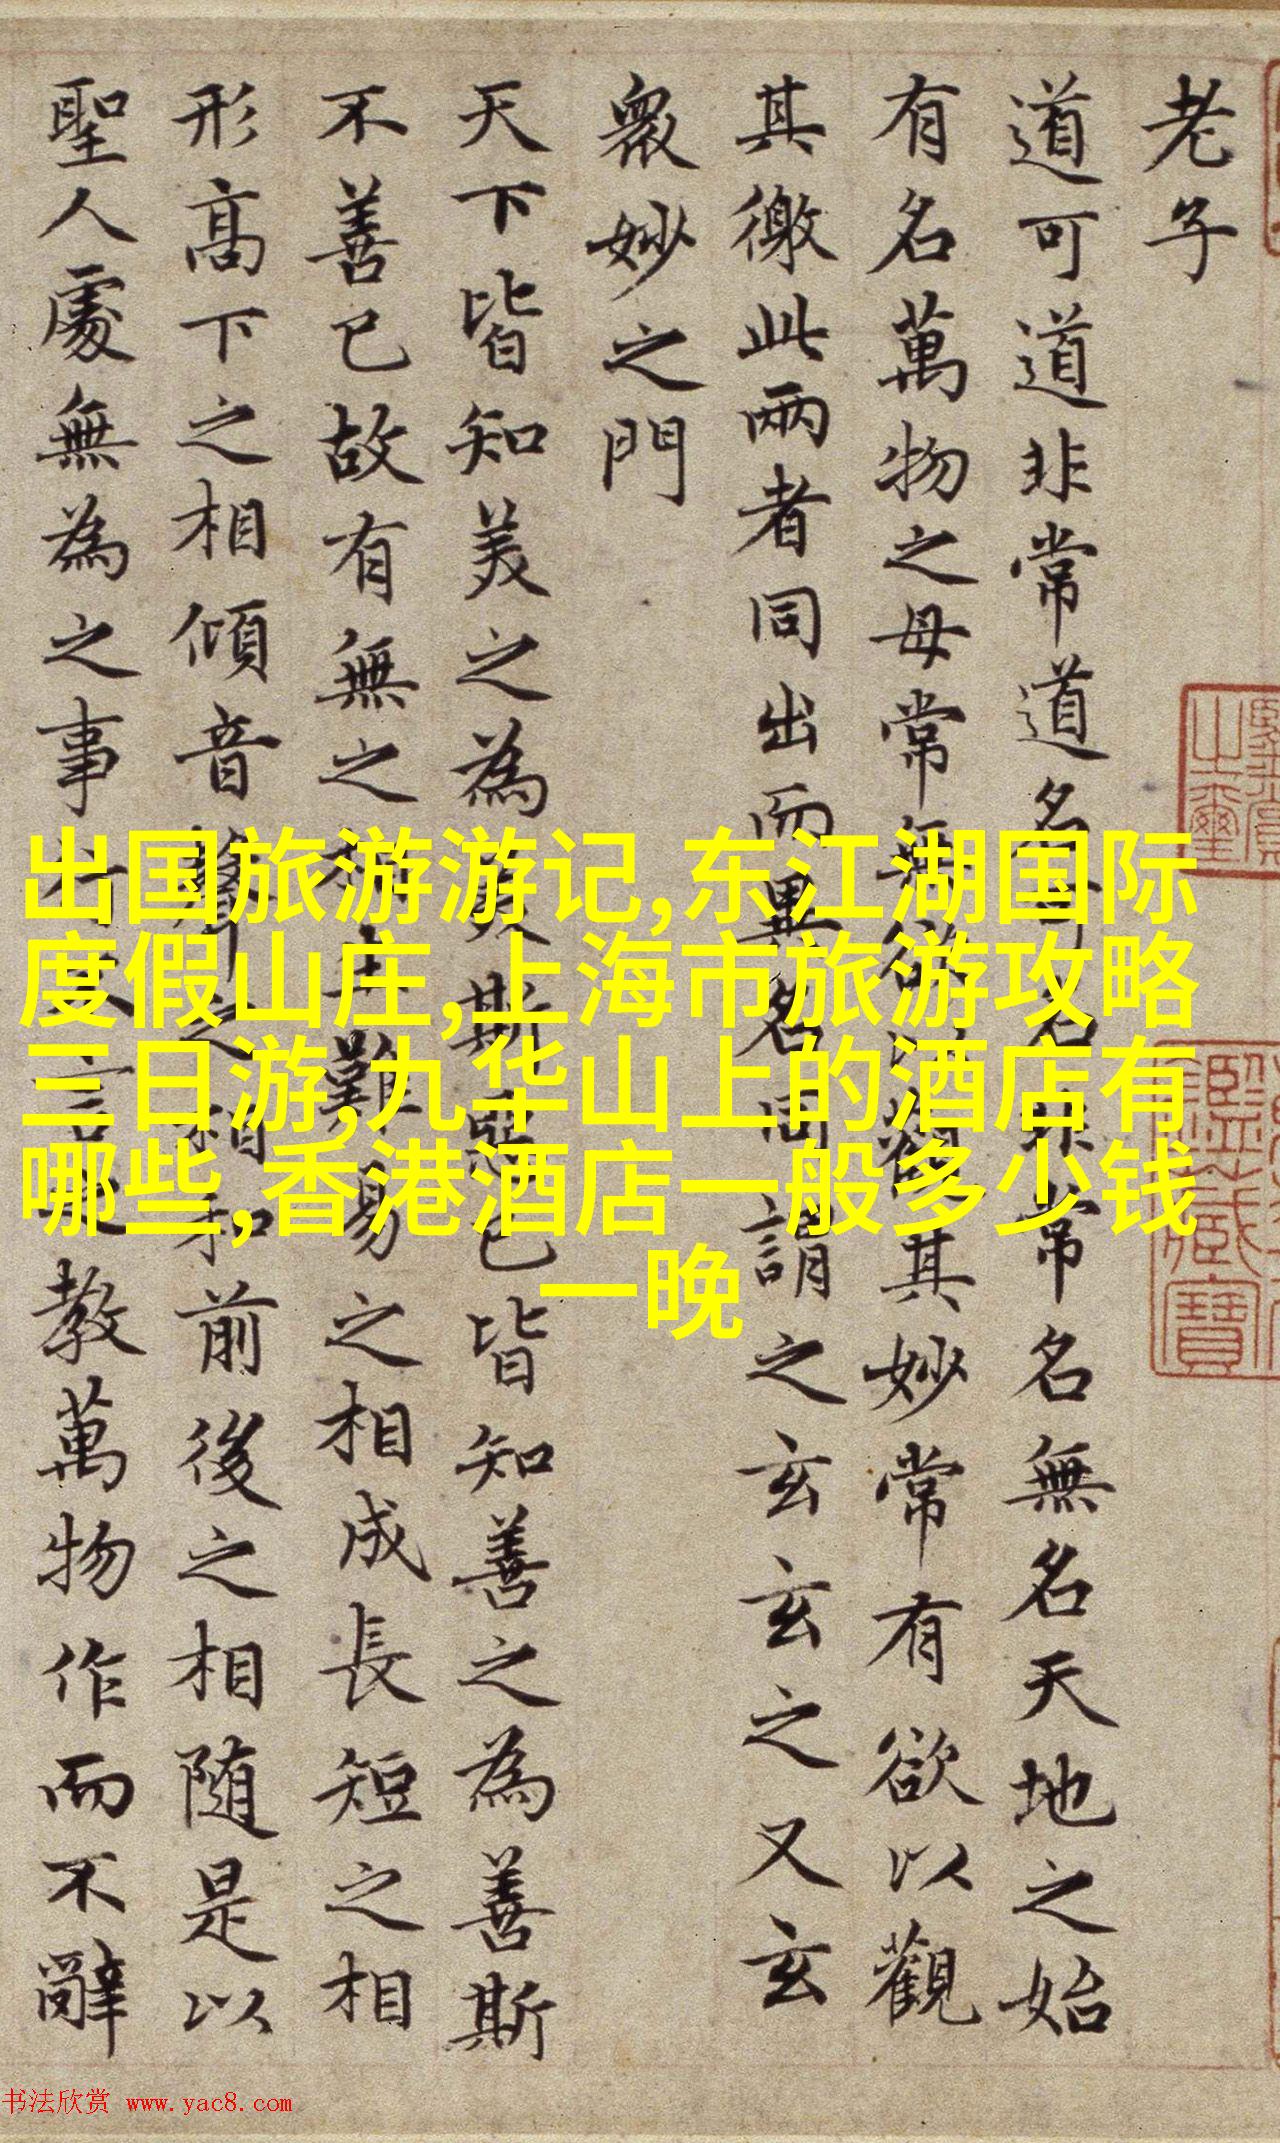 老子
道可道非常道名可名非常名無名天地之始
有名萬物之母常無欲以觀其妙常有欲以觀
其徼此兩者同出而異名同謂之玄玄之又玄
衆妙之門
天下皆知美之為美斯惡已皆知善之為善斯
不善已故有無之相生難易之相成長短之相
形高下之相傾音聲之相和前後之相随是以
聖人處無為之事行不言之教萬物作而不辭
出国旅游游记,东江湖国际
度假山庄,上海市旅游攻略
三日游,九华山上的酒店有
哪些,香港酒店一般多少钱
一晚
书法欣赏 www.yac8.com